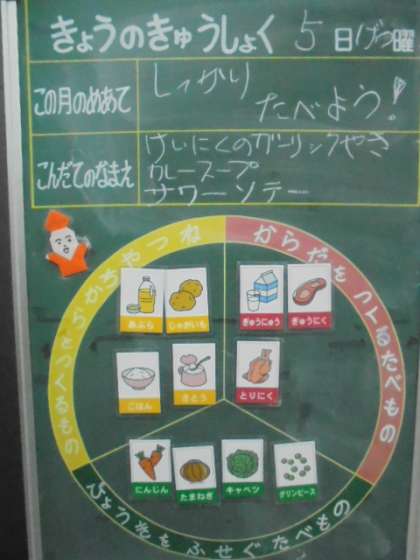 きょうのきゅうしょく 5日げつ曜
この月のめあて
しっかり
たべよう!
こんだてのなまえ
けいにくのガーリックやき
カレースープ
サワーソテー
ちからやねつをつくるもの
からだをつくるたべもの
あぶら
じゃがいも
ぎゅうにゅう
ぎゅうにく
ごはん
さとう
とりにく
にんじん
たまねぎ
キャベツ
グリンピース
びょうきをふせぐたべもの